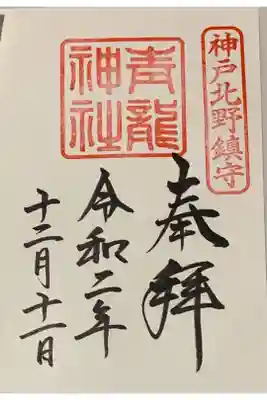 神戸北野鎮守
奉拝
青龍
神社
令和二年
十二月十一日